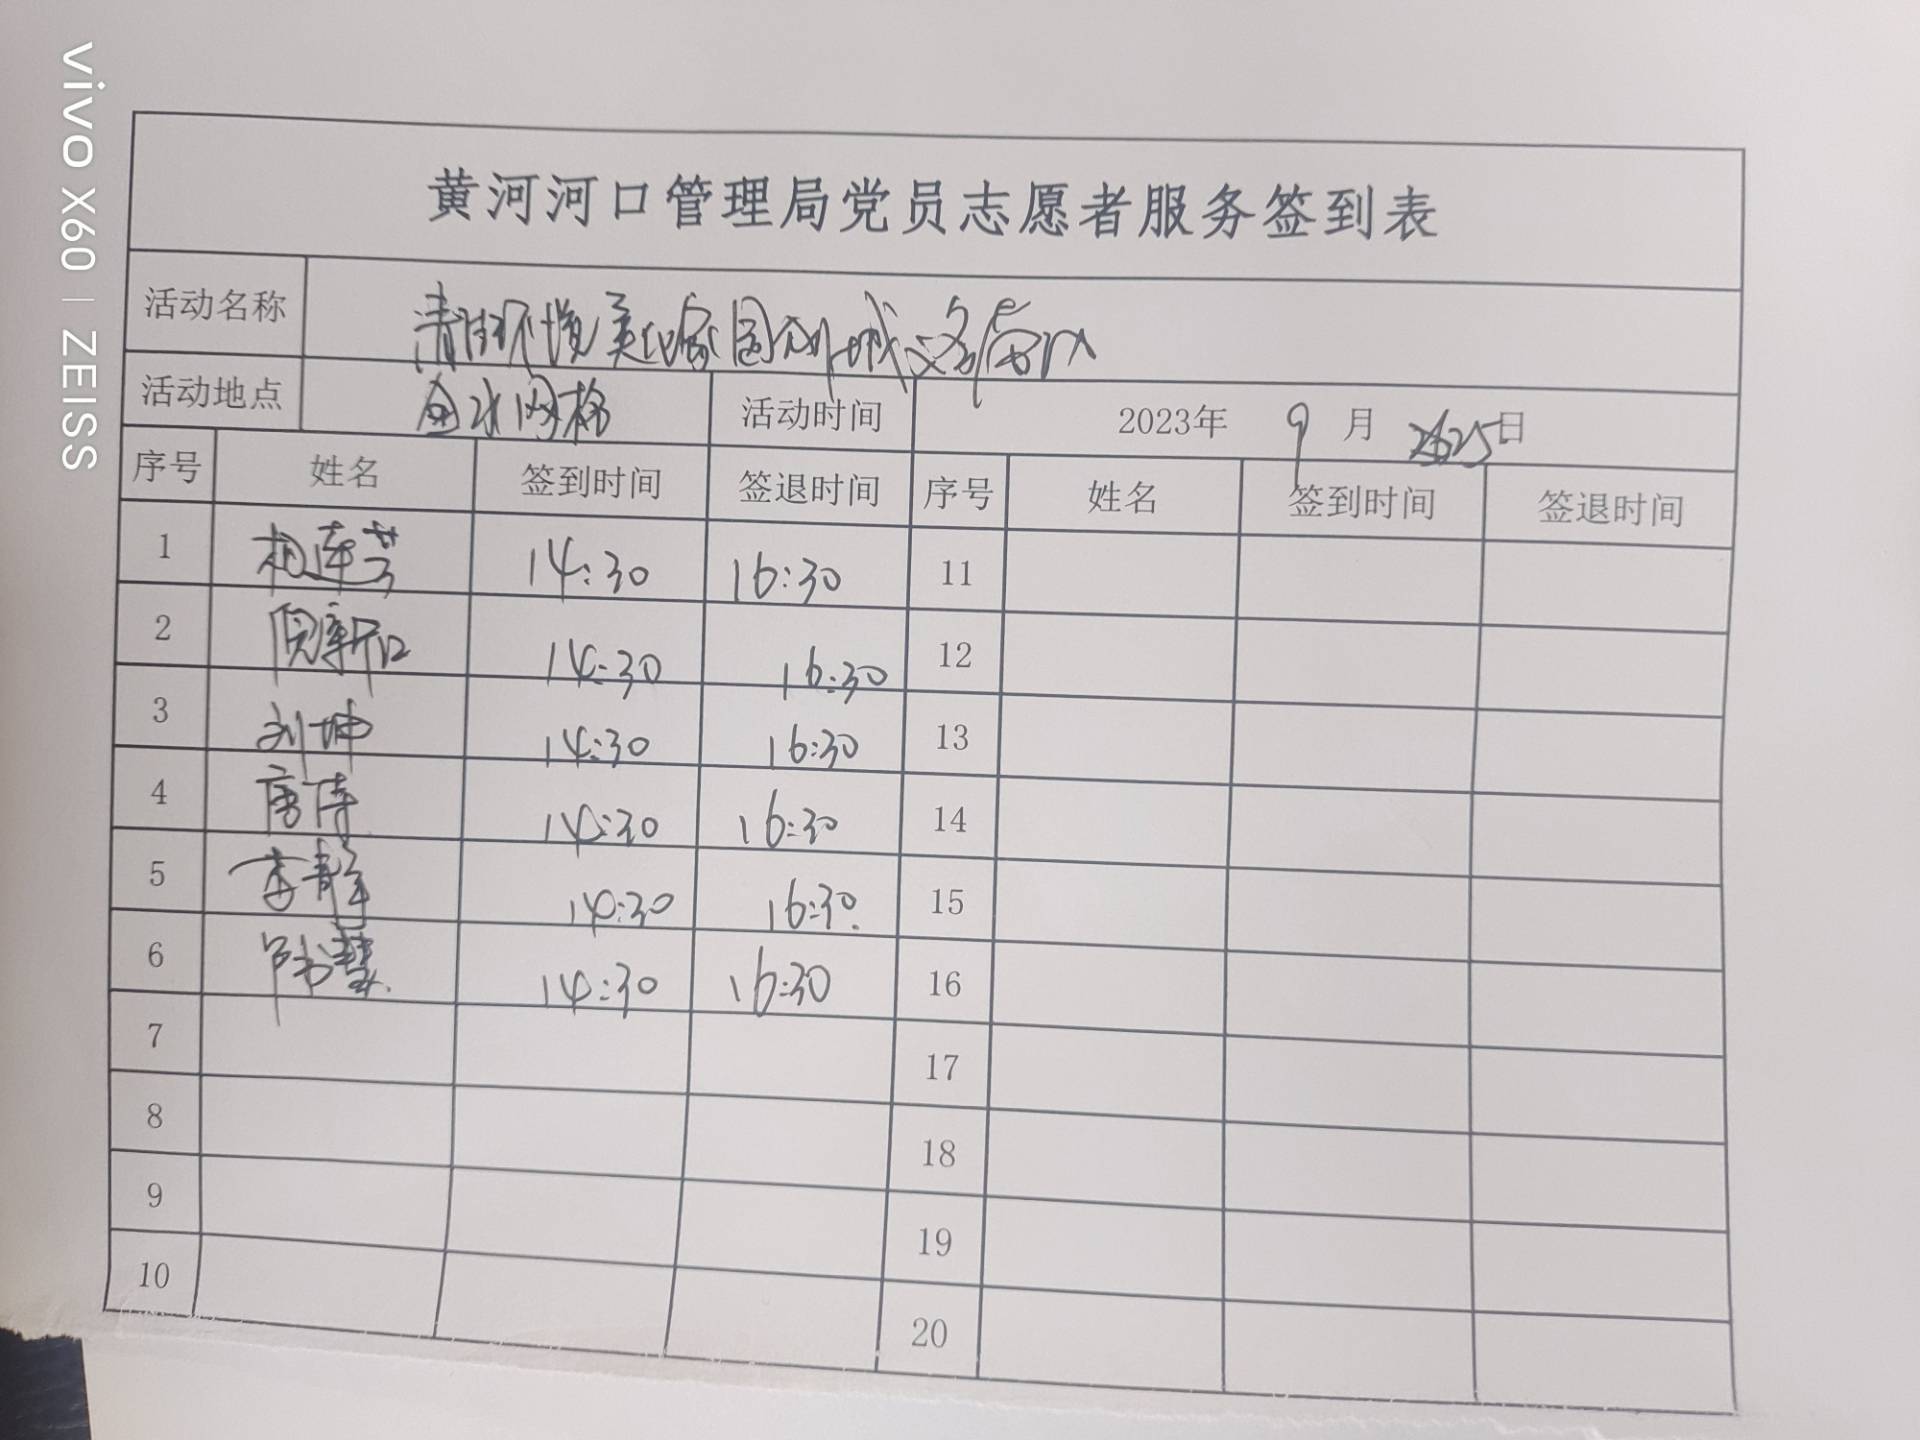 vivo X60 | ZEISS
黄河河口管理局党员志愿者服务签到表
活动名称 清洁环境美化家园创城
活动地点 网格 活动时间 2023年 9月 25日
序号 姓名 签到时间 签退时间 序号 姓名 签到时间 签退时间
1 14:30 16:30 11
2 14:30 16:30 12
3 刘坤 14:30 16:30 13
4 唐涛 14:30 16:30 14
5 李静 14:30 16:30 15
6 14:30 16:30 16
7 17
8 18
9 19
10 20